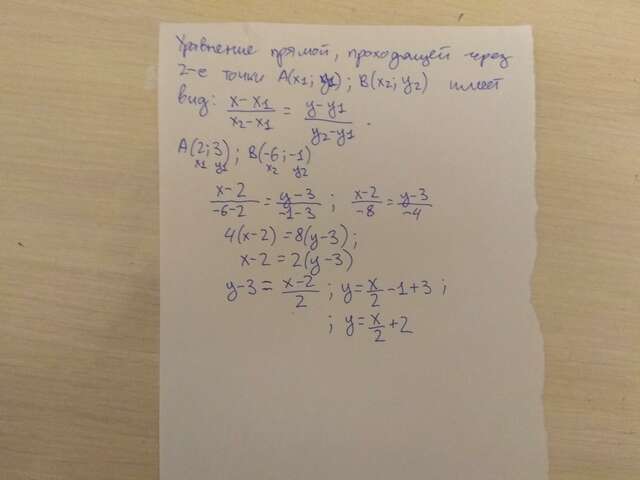 Уравнение прямой, проходящей через
2-е точки A(x1; y1) ; B(x2; y2) имеет
вид: (x-x1)/(x2-x1) = (y-y1)/(y2-y1).
A(2;3) ; B(-6;-1)
x1 y1 x2 y2
(x-2)/(-6-2) = (y-3)/(-1-3) ; (x-2)/(-8) = (y-3)/(-4)
4(x-2) = 8(y-3) ;
x-2 = 2(y-3)
y-3 = (x-2)/2 ; y = x/2 -1+3 ;
; y = x/2 +2